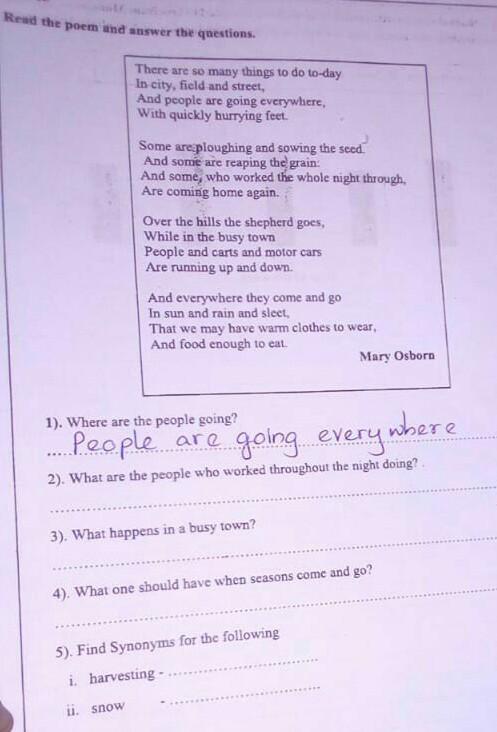 Read the poem and answer the questions.
There are so many things to do to-day
In city, field and street,
And people are going everywhere,
With quickly hurrying feet.
Some are ploughing and sowing the seed.
And some are reaping the grain:
And some, who worked the whole night through,
Are coming home again.
Over the hills the shepherd goes,
While in the busy town
People and carts and motor cars
Are running up and down.
And everywhere they come and go
In sun and rain and sleet,
That we may have warm clothes to wear,
And food enough to eat.
Mary Osborn
1). Where are the people going?
People are going everywhere
2). What are the people who worked throughout the night doing?
3). What happens in a busy town?
4). What one should have when seasons come and go?
5). Find Synonyms for the following
i. harvesting -
ii. snow -